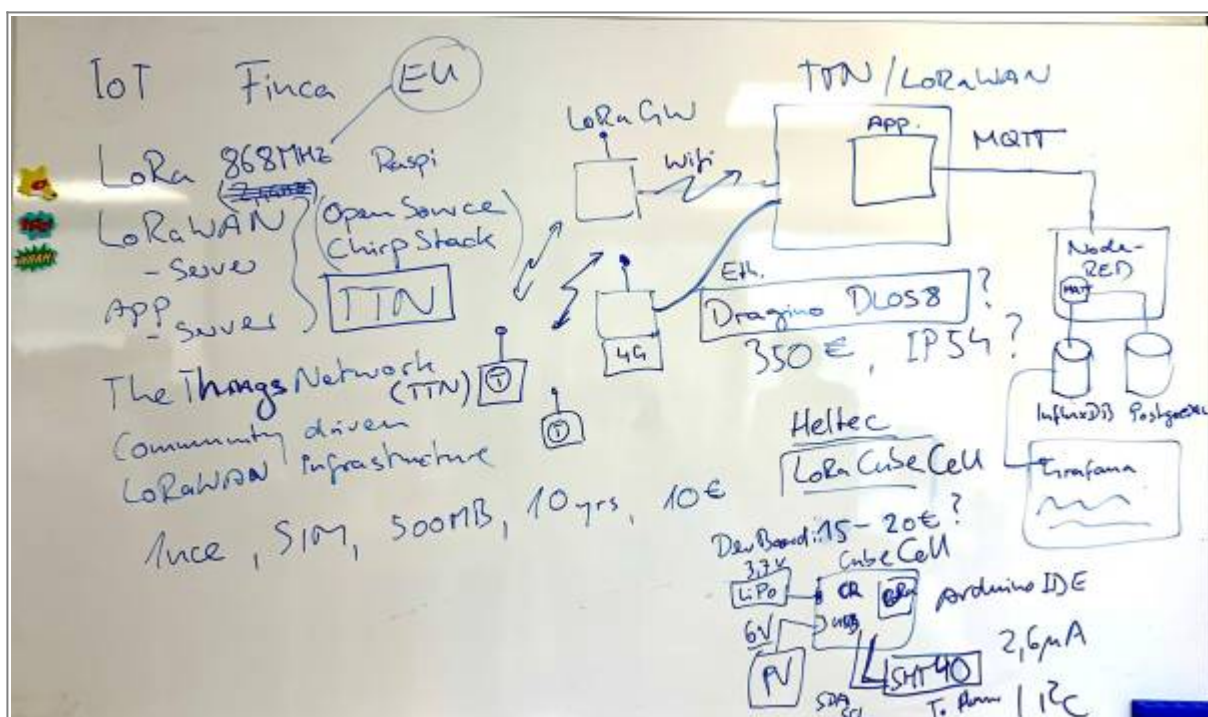 IoT Finca EU
LoRa 868MHz Raspi
LoRaWAN
- Server
(Open Source
ChirpStack)
APP
- Server
TTN
The Things Network
(TTN)
Community driven
LoRaWAN Infrastructure
1nce, SIM, 500MB, 10yrs, 10€
LoRa GW
Wifi
4G
T
T
TTN/LoRaWAN
APP.
MQTT
Eth.
Dragino DLOS8 ?
350 €, IP54 ?
Node-
RED
MQTT
InfluxDB
Grafana
Heltec
LoRa CubeCell
Dev Board: 15-20€ ?
CubeCell
3,7V
LiPo
LoRa
Arduino IDE
6V
USB
PV
SHT40
2,6µA
SDA
SCL
I²C